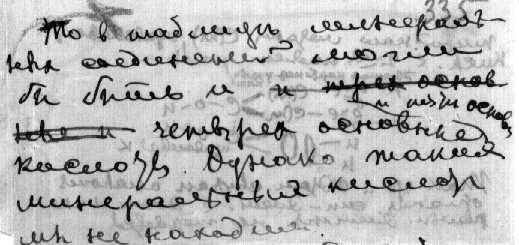 335
То в таблицѣ минераль-
ныхъ соединений могли
бы быть и и трех основ
и пяти основ
ные и четырех основные
кислоты. Однако таких
минеральных кислот
мы не находим.